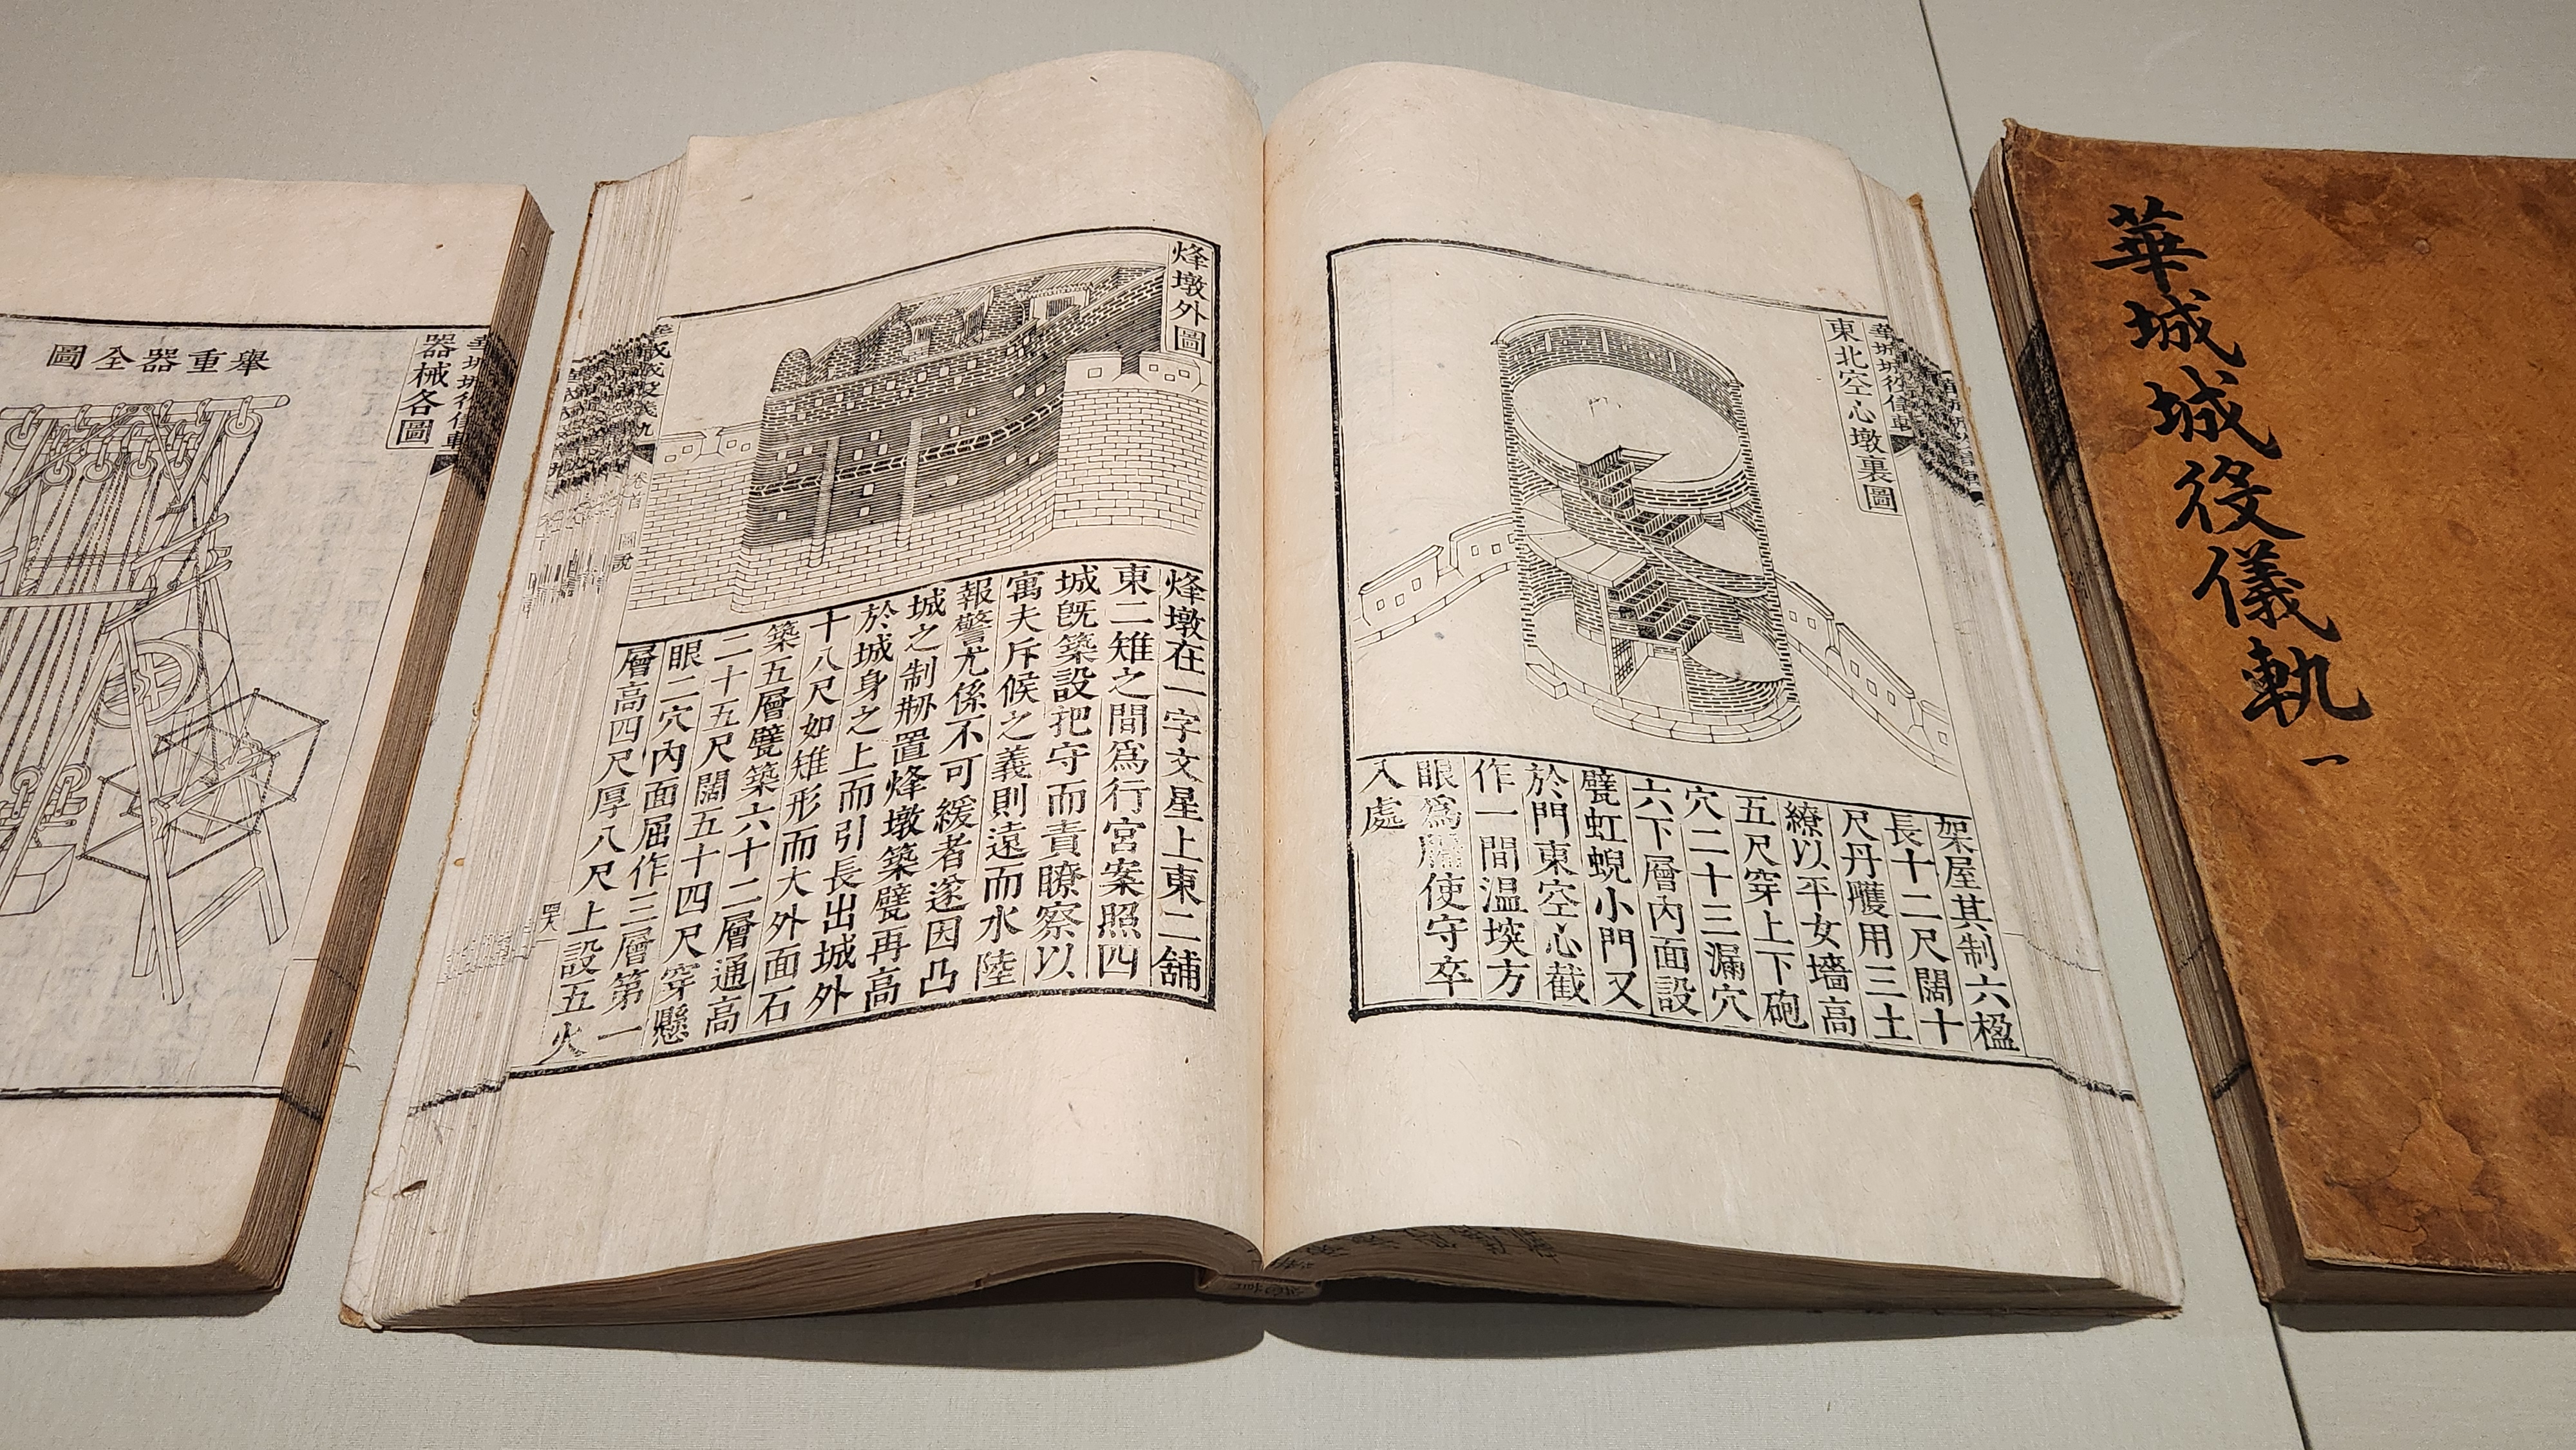 華城城役儀軌 一
華城城役儀軌
東北空心墩裏圖
架屋其制六楹
長十二尺闊十
尺丹雘用三土
繚以平女墻高
五尺穿上下砲
穴二十三漏穴
六下層內面設
甓虹蜺小門又
於門東空心截
作一間溫堗方
眼爲牕使守卒
入處
烽墩外圖
烽墩在一字文星上東二舖
東二雉之間爲行宮案照四
城旣築設把守而責瞭察以
寓夫斥候之義則遠而水陸
報警尤係不可緩者遂因凸
城之制刱置烽墩築甓再高
於城身之上而引長出城外
十八尺如雉形而大外面石
築五層甓築六十二層通高
二十五尺闊五十四尺穿懸
眼二穴內面屈作三層第一
層高四尺厚八尺上設五火
卷首 圖說
華城城役儀軌
器械各圖
擧重器全圖